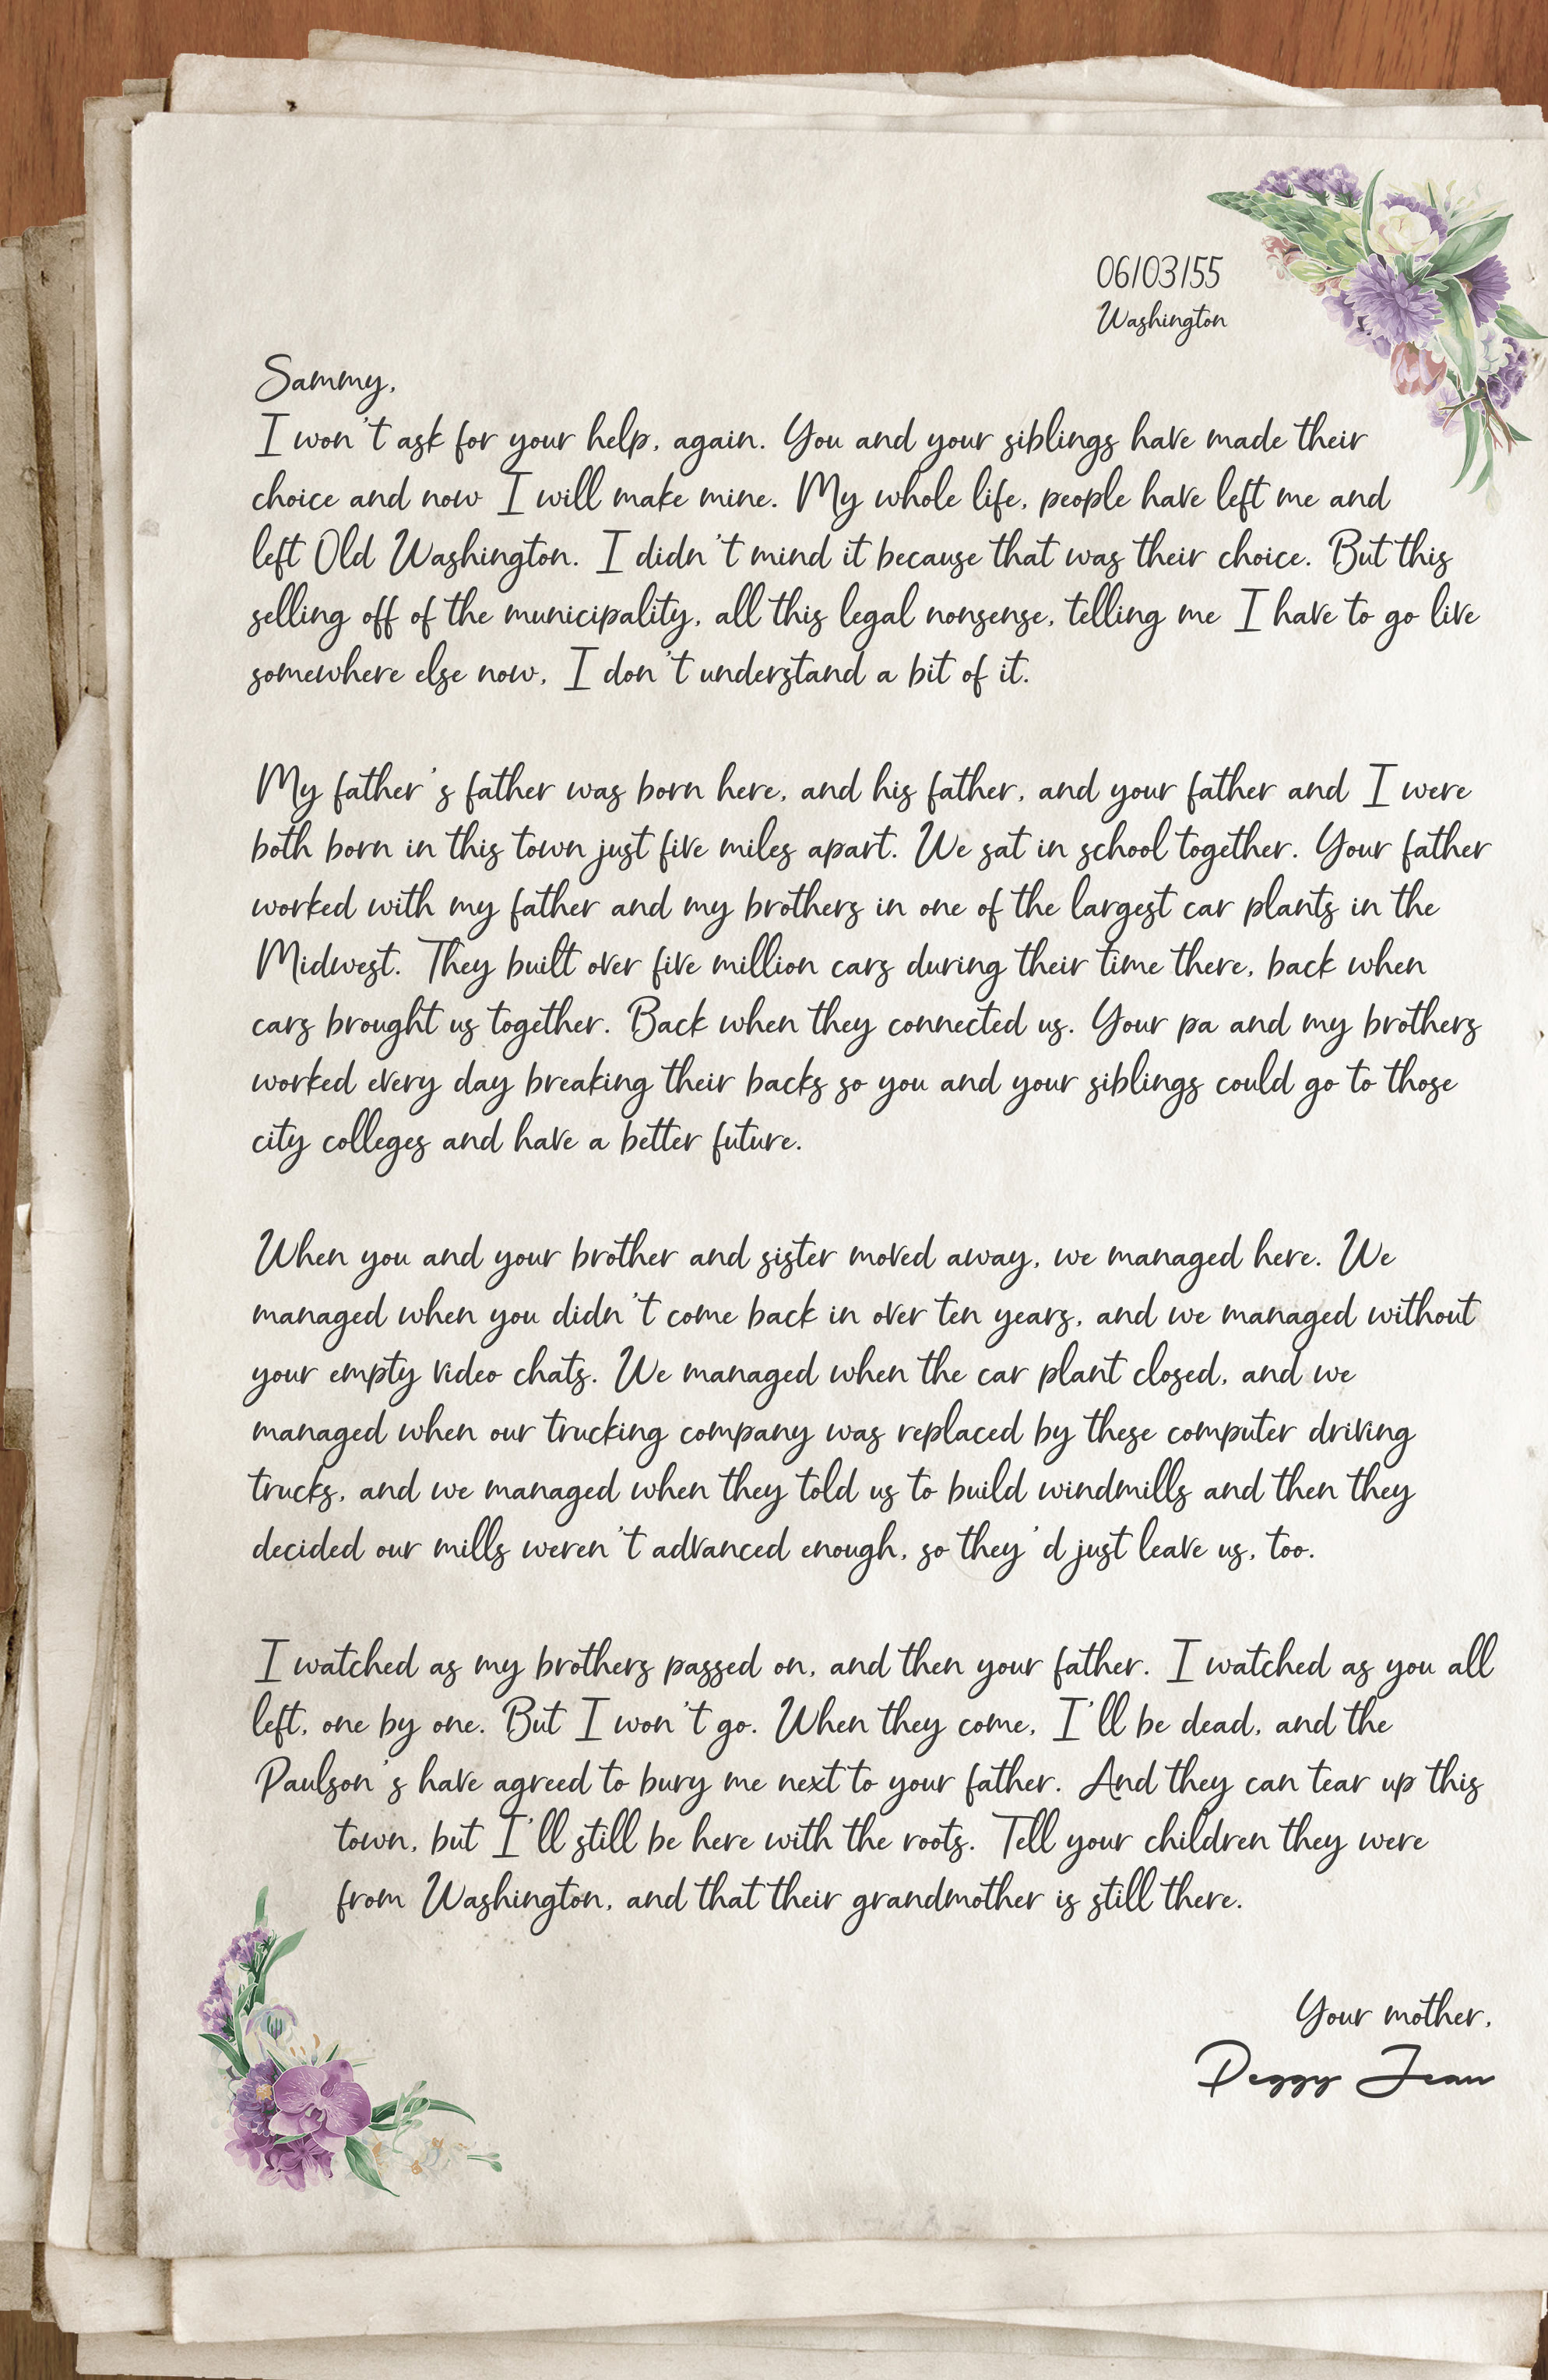 06/03/55
Washington
Sammy,
I won't ask for your help, again. You and your siblings have made their
choice and now I will make mine. My whole life, people have left me and
left Old Washington. I didn't mind it because that was their choice. But this
selling off of the municipality, all this legal nonsense, telling me I have to go live
somewhere else now, I don't understand a bit of it.
My father's father was born here, and his father, and your father and I were
both born in this town just five miles apart. We sat in school together. Your father
worked with my father and my brothers in one of the largest car plants in the
Midwest. They built over five million cars during their time there, back when
cars brought us together. Back when they connected us. Your pa and my brothers
worked every day breaking their backs so you and your siblings could go to those
city colleges and have a better future.
When you and your brother and sister moved away, we managed here. We
managed when you didn't come back in over ten years, and we managed without
your empty video chats. We managed when the car plant closed, and we
managed when our trucking company was replaced by these computer driving
trucks, and we managed when they told us to build windmills and then they
decided our mills weren't advanced enough, so they'd just leave us, too.
I watched as my brothers passed on, and then your father. I watched as you all
left, one by one. But I won't go. When they come, I'll be dead, and the
Paulson's have agreed to bury me next to your father. And they can tear up this
town, but I'll still be here with the roots. Tell your children they were
from Washington, and that their grandmother is still there.
Your mother,
Peggy Jean